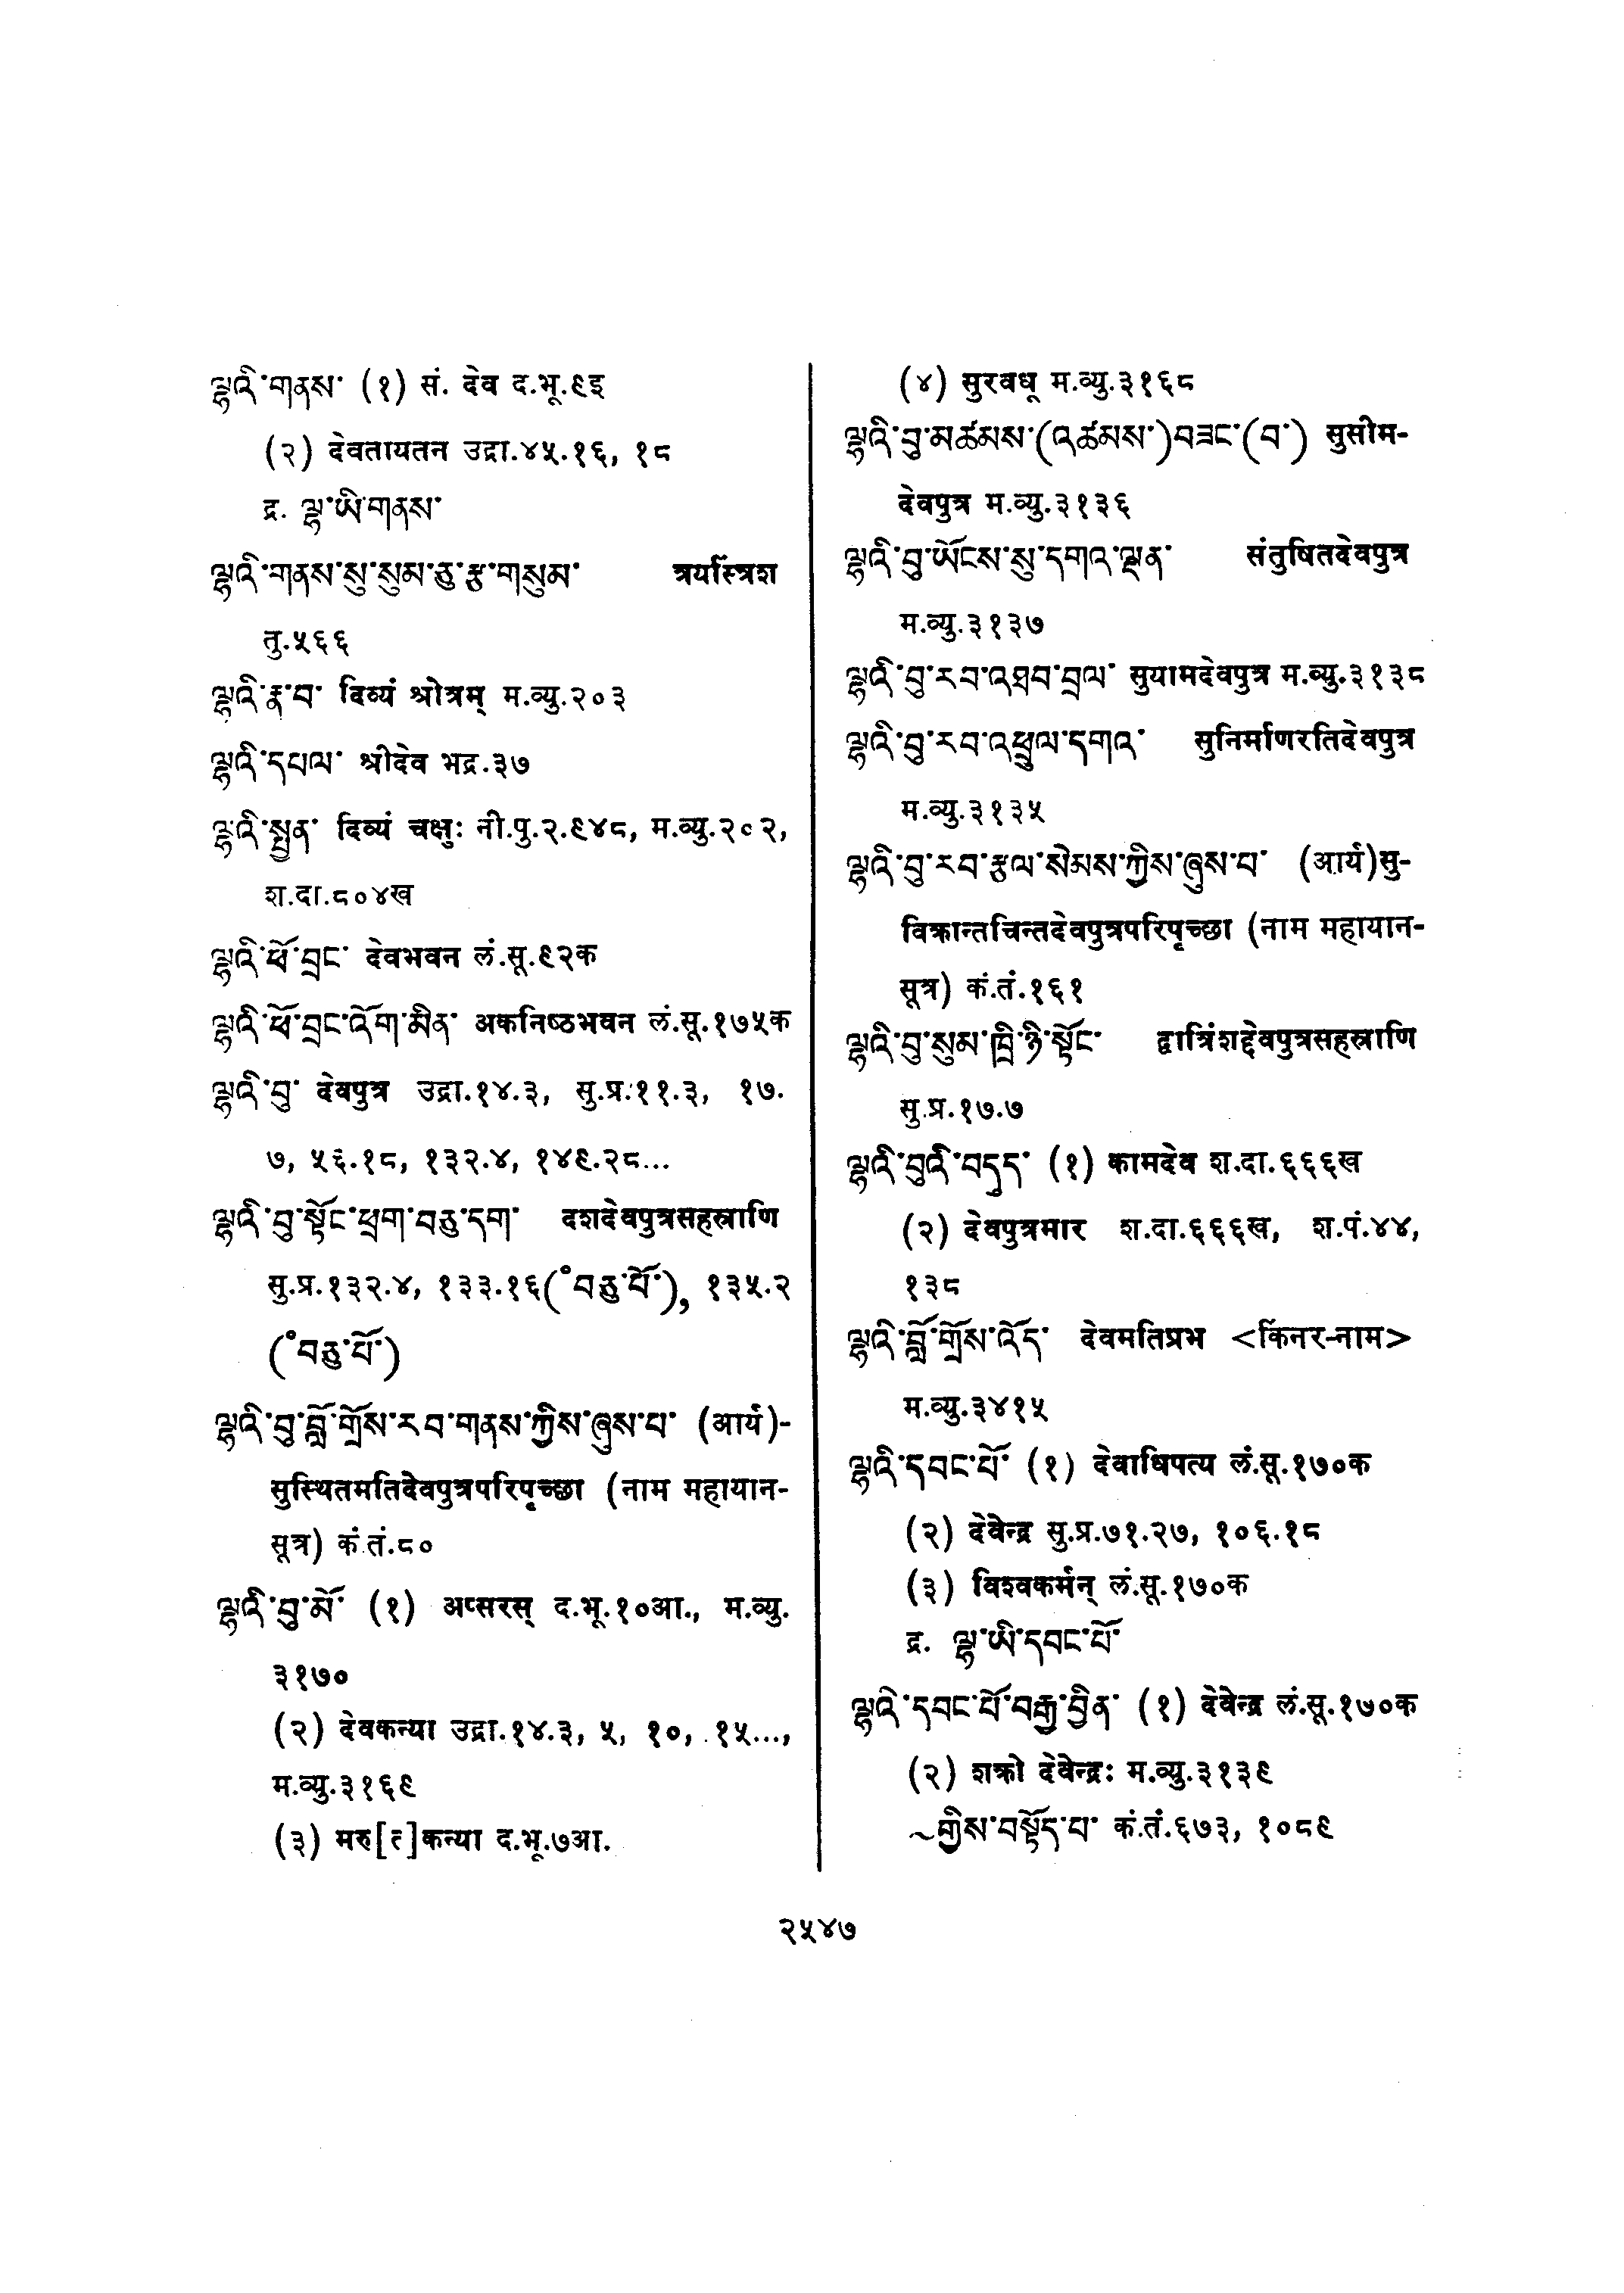 ལྷའི་གནས་ (१) सं. देव द.भू.९इ
(२) देवतायतन उद्रा.४५.१६, १८
द्र. ལྷ་ཡི་གནས་
ལྷའི་གནས་སུ་སུམ་ཅུ་རྩ་གསུམ་ त्रयस्त्रिंश
तु.५६६
ལྷའི་རྣ་བ་ दिव्यं श्रोत्रम् म.व्यु.२०३
ལྷའི་དཔལ་ श्रीदेव भद्र.३७
ལྷའི་སྤྱན་ दिव्यं चक्षुः नी.पु.२.९४८, म.व्यु.२०२,
श.दा.८०४ख
ལྷའི་ཕོ་བྲང་ देवभवन लं.सू.९२क
ལྷའི་ཕོ་བྲང་འོག་མིན་ अकनिष्ठभवन लं.सू.१७५क
ལྷའི་བུ་ देवपुत्र उद्रा.१४.३, सु.प्र.११.३, १७.
७, ५६.१८, १३२.४, १४९.२८...
ལྷའི་བུ་སྟོང་ཕྲག་བཅུ་དག་ दशदेवपुत्रसहस्राणि
सु.प्र.१३२.४, १३३.१६(°བཅུ་པོ་), १३५.२
(°བཅུ་པོ་)
ལྷའི་བུ་བློ་གྲོས་རབ་གནས་ཀྱིས་ཞུས་པ་ (आर्य)-
सुस्थितमतिदेवपुत्रपरिपृच्छा (नाम महायान-
सूत्र) कं.तं.८०
ལྷའི་བུ་མོ་ (१) अप्सरस् द.भू.१०आ., म.व्यु.
३१७०
(२) देवकन्या उद्रा.१४.३, ५, १०, १५...,
म.व्यु.३१६९
(३) मरु[त]कन्या द.भू.७आ.
(४) सुरवधू म.व्यु.३१६८
ལྷའི་བུ་མཚམས་(འཚམས་)བཟང་(བ་) सुसीम-
देवपुत्र म.व्यु.३१३६
ལྷའི་བུ་ཡོངས་སུ་དགའ་ལྡན་ संतुषितदेवपुत्र
म.व्यु.३१३७
ལྷའི་བུ་རབ་འཐབ་བྲལ་ सुयामदेवपुत्र म.व्यु.३१३८
ལྷའི་བུ་རབ་འཕྲུལ་དགའ་ सुनिर्माणरतिदेवपुत्र
म.व्यु.३१३५
ལྷའི་བུ་རབ་རྩལ་སེམས་ཀྱིས་ཞུས་པ་ (आर्य)सु-
विक्रान्तचिन्तदेवपुत्रपरिपृच्छा (नाम महायान-
सूत्र) कं.तं.१६१
ལྷའི་བུ་སུམ་ཁྲི་ཉི་སྟོང་ द्वात्रिंशद्देवपुत्रसहस्राणि
सु.प्र.१७.७
ལྷའི་བུའི་བདུད་ (१) कामदेव श.दा.६६६ख
(२) देवपुत्रमार श.दा.६६६ख, श.पं.४४,
१३८
ལྷའི་བློ་གྲོས་འོད་ देवमतिप्रभ <किंनर-नाम>
म.व्यु.३४१५
ལྷའི་དབང་པོ་ (१) देवाधिपत्य लं.सू.१७०क
(२) देवेन्द्र सु.प्र.७१.२७, १०६.१८
(३) विश्वकर्मन् लं.सू.१७०क
द्र. ལྷ་ཡི་དབང་པོ་
ལྷའི་དབང་པོ་བརྒྱ་བྱིན་ (१) देवेन्द्र लं.सू.१७०क
(२) शक्रो देवेन्द्रः म.व्यु.३१३९
~གྱིས་བསྟོད་པ་ कं.तं.६७३, १०८९
२५४७